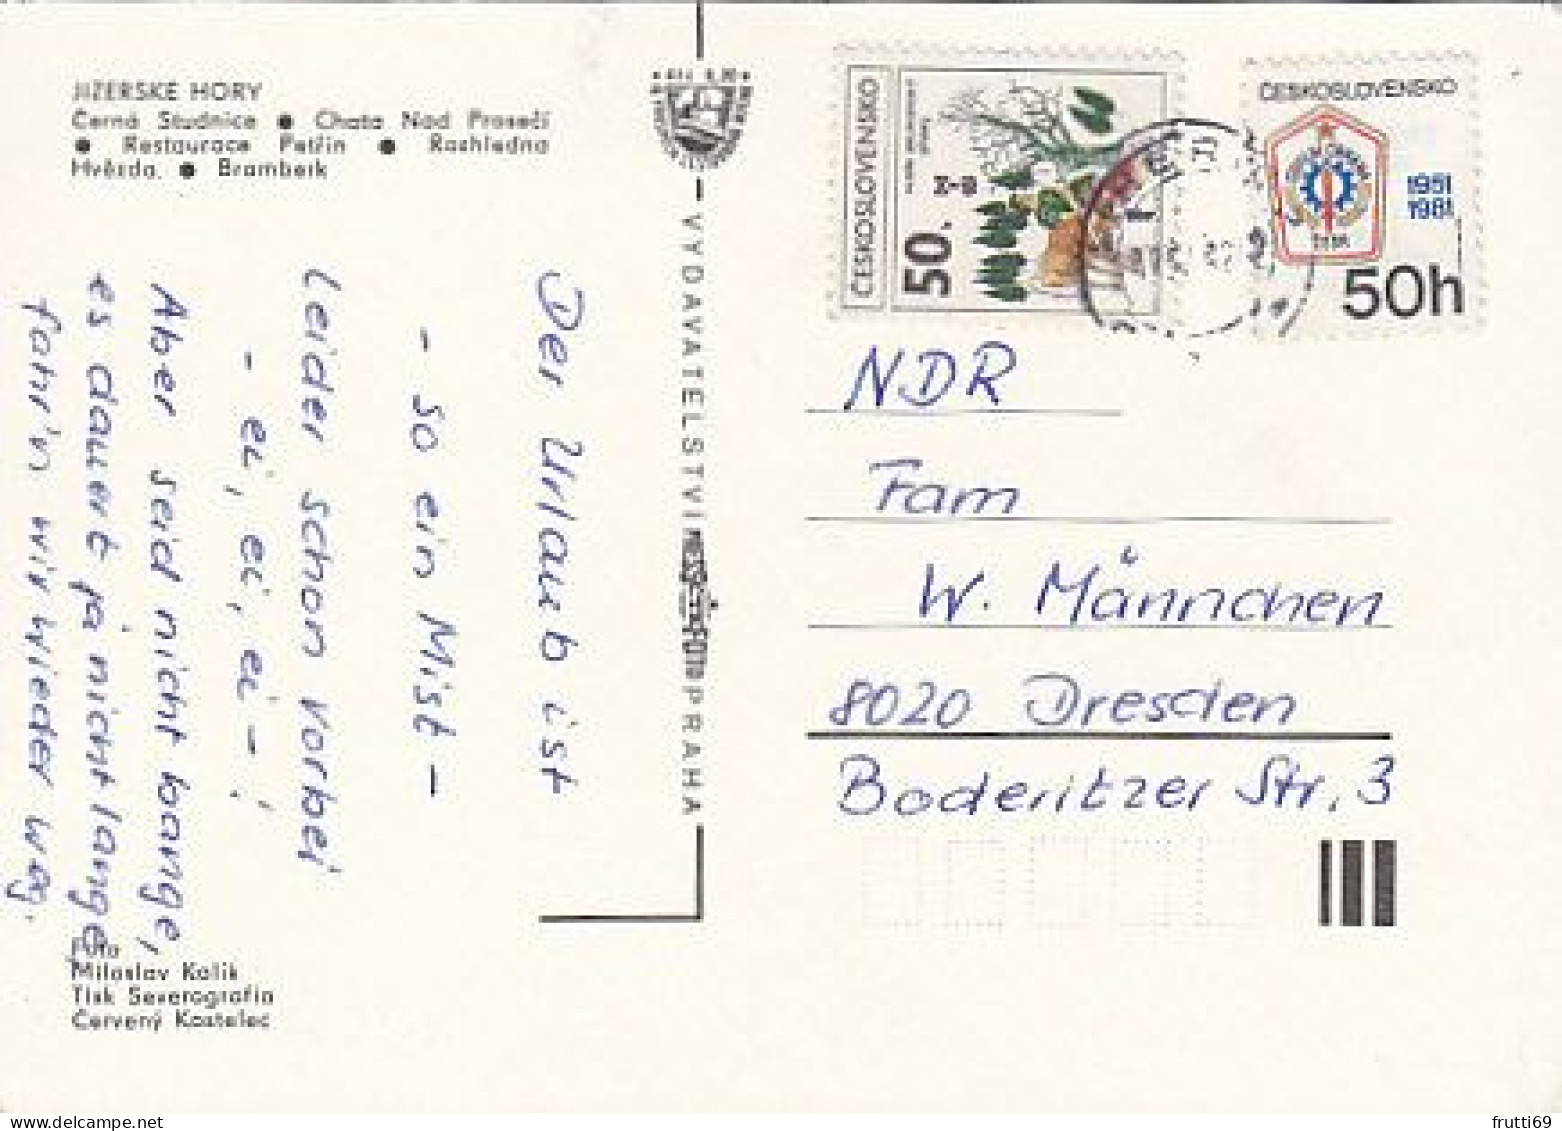 JIZERSKÉ HORY
Černá Studnice ● Chata Nad Prosečí
● Restaurace Petřín ● Rozhledna
Hvězda, ● Bramberk
Der Urlaub ist
- So ein Mist -
leider schon vorbei
- ei, ei, ei - !
Aber seid nicht bange,
es dauert ja nicht lange,
fahr'n wir wieder weg.
Foto
Miloslav Kalik
Tisk Severografia
Červený Kostelec
VYDAVATELSTVÍ PRAHA
ČESKOSLOVENSKO
50
ČESKOSLOVENSKO
1951
1981
50h
NDR
Fam
W. Männchen
8020 Dresden
Boderitzer Str. 3
frutti69